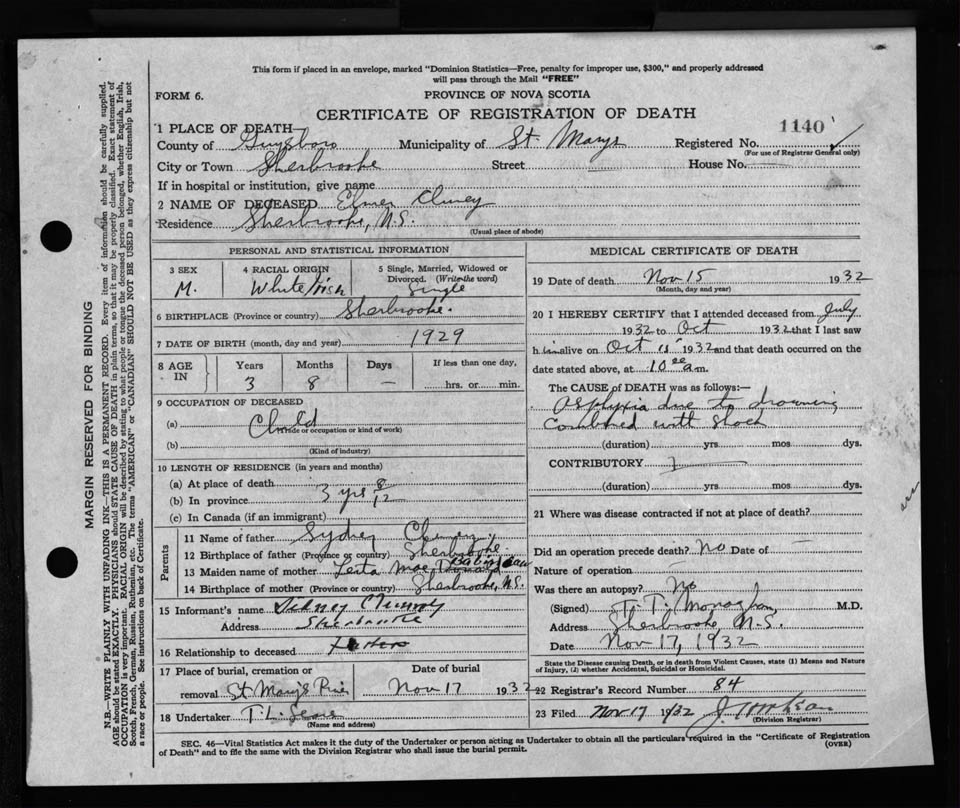 This form if placed in an envelope, marked "Dominion Statistics—Free, penalty for improper use, $300," and properly addressed
will pass through the Mail "FREE"
FORM 6. PROVINCE OF NOVA SCOTIA
CERTIFICATE OF REGISTRATION OF DEATH
1 PLACE OF DEATH— 1140
County of Guysboro Municipality of St. Marys Registered No.
(For use of Registrar General only)
City or Town Sherbrooke Street House No.
If in hospital or institution, give name
2 NAME OF DECEASED Elmer
Residence Sherbrooke, N.S.
(Usual place of abode)
PERSONAL AND STATISTICAL INFORMATION
3 SEX 4 RACIAL ORIGIN 5 Single, Married, Widowed or
Divorced. (Write the word)
M. White/Irish Single
6 BIRTHPLACE (Province or country) Sherbrooke.
7 DATE OF BIRTH (month, day and year) 1929
8 AGE IN Years Months Days If less than one day,
3 8 — hrs. or min.
9 OCCUPATION OF DECEASED
(a) Child
(Trade or occupation or kind of work)
(b)
(Kind of industry)
10 LENGTH OF RESIDENCE (in years and months)
(a) At place of death
(b) In province 3 yrs 8/12
(c) In Canada (if an immigrant)
Parents
11 Name of father Sydney
12 Birthplace of father (Province or country) Sherbrooke.
13 Maiden name of mother
14 Birthplace of mother (Province or country) Sherbrooke, N.S.
15 Informant's name Sidney
Address Sherbrooke
16 Relationship to deceased Father
17 Place of burial, cremation or Date of burial
removal St Mary's River Nov 17 1932
18 Undertaker T. L.
(Name and address)
MEDICAL CERTIFICATE OF DEATH
19 Date of death Nov 15 1932
(Month, day and year)
20 I HEREBY CERTIFY that I attended deceased from July
1932 to Oct 1932 that I last saw
h im alive on Oct 1932 and that death occurred on the
date stated above, at 10 a m.
The CAUSE OF DEATH was as follows:—
Asphyxia due to drowning
combined with shock
(duration) yrs mos dys.
CONTRIBUTORY
(duration) yrs. mos. dys.
21 Where was disease contracted if not at place of death?
Did an operation precede death? No Date of —
Nature of operation —
Was there an autopsy? No
(Signed) T. T. Monaghan M.D.
Address Sherbrooke, N.S.
Date Nov 17, 1932
State the Disease causing Death, or in death from Violent Causes, state (1) Means and Nature
of Injury, (2) whether Accidental, Suicidal or Homicidal.
22 Registrar's Record Number 84
23 Filed Nov 17 1932
(Division Registrar)
SEC. 46—Vital Statistics Act makes it the duty of the Undertaker or person acting as Undertaker to obtain all the particulars required in the "Certificate of Registration
of Death" and to file the same with the Division Registrar who shall issue the burial permit. (OVER)
MARGIN RESERVED FOR BINDING
N.B.—WRITE PLAINLY WITH UNFADING INK—THIS IS A PERMANENT RECORD. Every item of information should be carefully supplied.
AGE should be stated EXACTLY. PHYSICIANS should STATE CAUSE OF DEATH in plain terms, so that it may be properly classified. Exact statement of
OCCUPATION is very important. RACIAL ORIGIN will be described by stating to what people or tongue the deceased person belonged, whether English, Irish,
Scotch, French, German, Russian, Ruthenian, etc. The terms "AMERICAN" or "CANADIAN" SHOULD NOT BE USED as they express citizenship but not
a race or people. See instructions on back of Certificate.